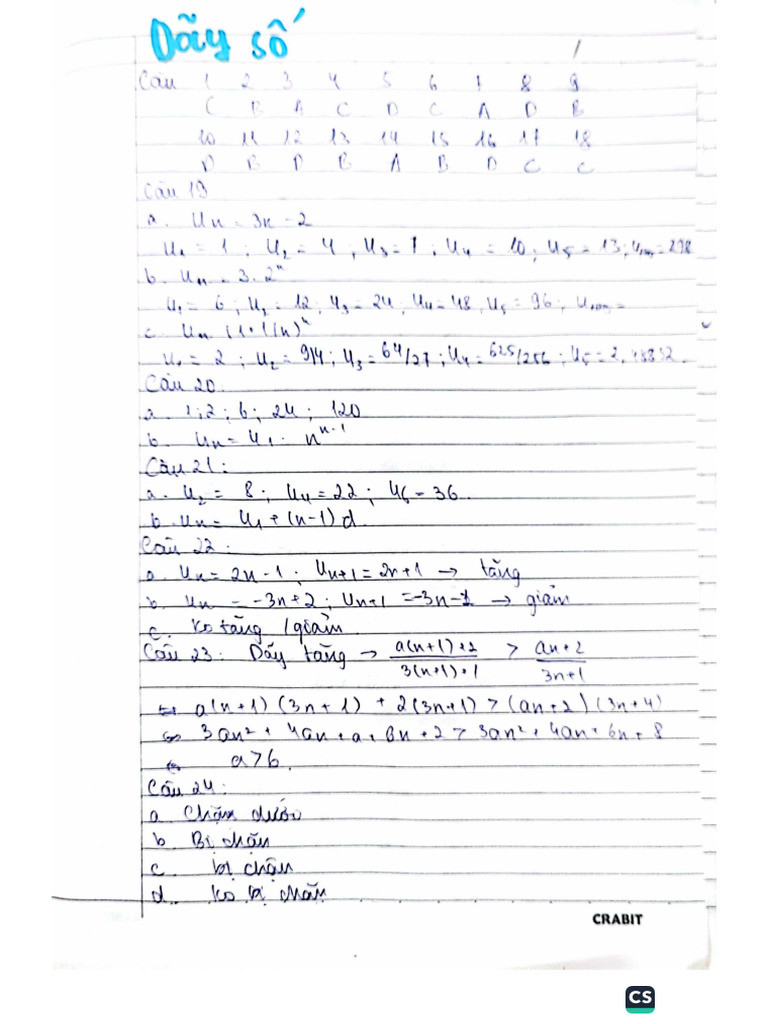 Dãy số
Câu 1 2 3 4 5 6 7 8 9
C B A C D C A D B
10 11 12 13 14 15 16 17 18
D B D B A B D C C
Câu 19
a. Un = 3n - 2
U1 = 1 ; U2 = 4 ; U3 = 7 ; U4 = 10 ; U5 = 13 ; U100 = 298
b. Un = 3. 2^n
U1 = 6 ; U2 = 12 ; U3 = 24 ; U4 = 48 , U5 = 96 ; U100 =
c. Un (1+1/n)^n
U1 = 2 ; U2 = 9/4 ; U3 = 64/27 ; U4 = 625/256 ; U5 = 2,48832.
Câu 20.
a. 1 ; 2 ; 6 ; 24 ; 120
b. Un = U1 . n^n-1
Câu 21 :
a. U2 = 8 ; U4 = 22 ; U6 = 36.
b. Un = U1 + (n-1) d.
Câu 22 :
a. Un = 2n - 1 ; Un+1 = 2n + 1 → tăng
b. Un = -3n + 2 ; Un+1 = -3n - 1 → giảm
c. Ko tăng / giảm.
Câu 23 : Dãy tăng → a(n+1)+2 / 3(n+1)+1 > an+2 / 3n+1
⇔ a(n+1) (3n+1) + 2(3n+1) > (an+2) (3n+4)
⇔ 3an² + 4an + a + 6n + 2 > 3an² + 4an + 6n + 8
⇔ a > 6.
Câu 24 :
a. Chặn dưới
b. Bị chặn
c. bị chặn
d. Ko bị chặn
CRABIT
CS